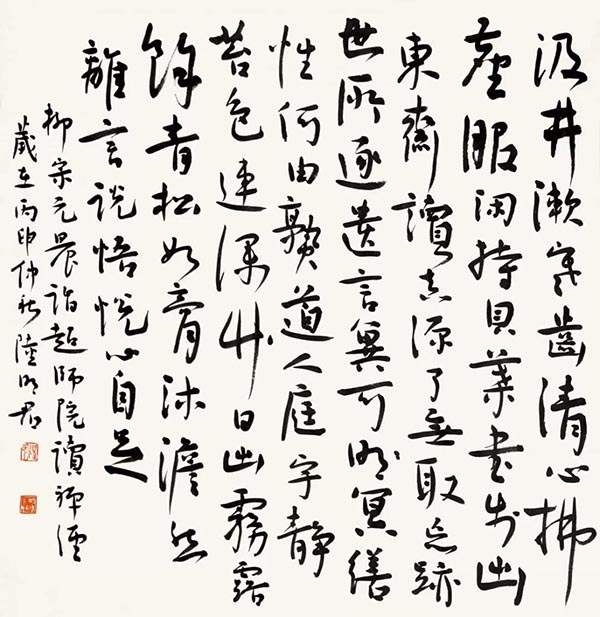 汲井漱寒齒清心拂
塵服闲持貝葉書步出
東齋讀真源了無取妄跡
世所逐遺言冀可明冥繕
性何由熟道人庭宇靜
苔色連深竹日出霧露
餘青松如膏沐澹然
離言說悟悅心自足
柳宗元晨詣超師院讀禪經
歲在丙申仲秋陸明君